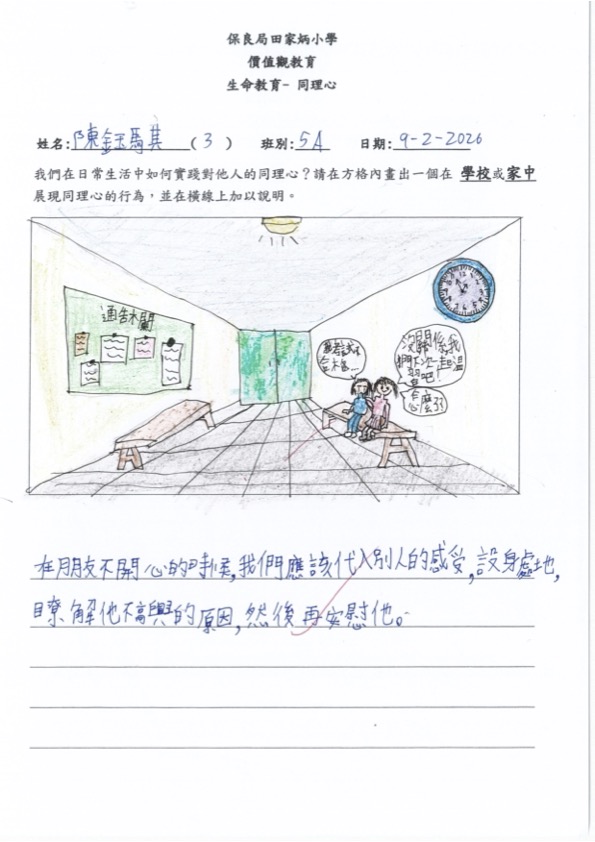 保良局田家炳小學
價值觀教育
生命教育- 同理心
姓名:陳鈺騏(3) 班別:5A 日期:9-2-2026
我們在日常生活中如何實踐對他人的同理心？請在方格內畫出一個在 學校或家中
展現同理心的行為，並在橫線上加以說明。
通告欄
我考試不合格…
沒關係我們下次一起溫習吧!
怎麼了?
在朋友不開心的時候,我們應該代入別人的感受,設身處地,
瞭解他不高興的原因,然後再安慰他。